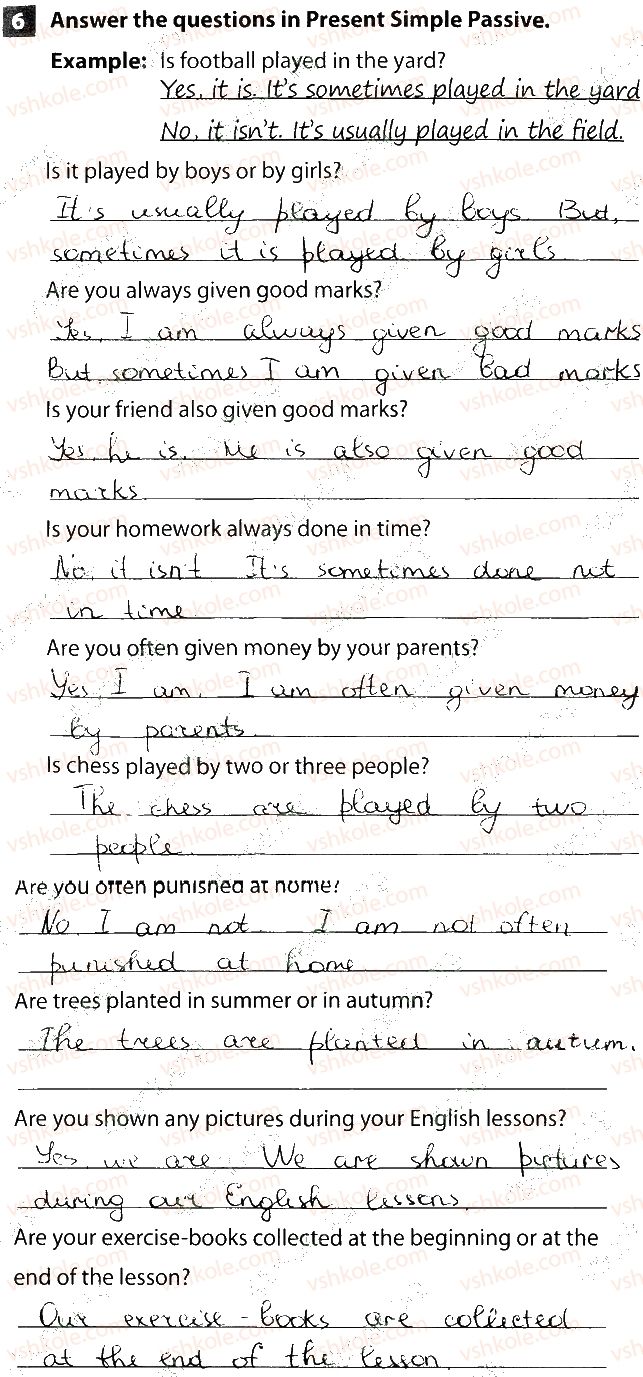 6 Answer the questions in Present Simple Passive.
Example: Is football played in the yard?
Yes, it is. It's sometimes played in the yard
No, it isn't. It's usually played in the field.
Is it played by boys or by girls?
It's usually played by boys But,
sometimes it is played by girls
Are you always given good marks?
Yes, I am always given good marks
But, sometimes I am given bad marks
Is your friend also given good marks?
Yes, he is. He is also given good
marks.
Is your homework always done in time?
No, it isn't It's sometimes done not
in time
Are you often given money by your parents?
Yes, I am. I am often given money
by parents.
Is chess played by two or three people?
The chess are played by two
people.
Are you often punished at home?
No, I am not. I am not often
punished at home
Are trees planted in summer or in autumn?
The trees are planted in autum.
Are you shown any pictures during your English lessons?
Yes, we are. We are shown pictures
during our English lessons.
Are your exercise-books collected at the beginning or at the
end of the lesson?
Our exercise-books are collected
at the end of the lesson.
vshkole.com